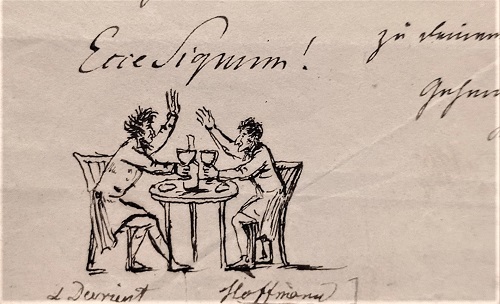 Ecce Signum!
zu deinem
L Devrient Hoffmann